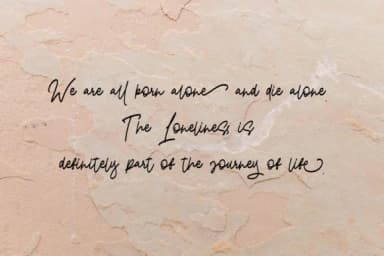 We are all born alone and die alone.
The Loneliness is
definitely part of the journey of life.